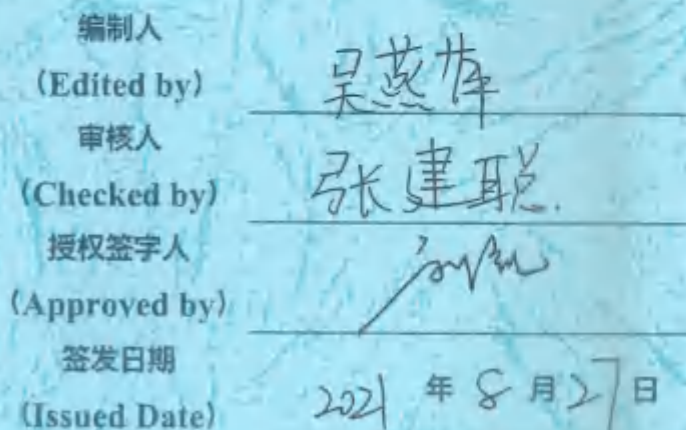 编制人
(Edited by) 吴燕
审核人
(Checked by) 张建聪
授权签字人
(Approved by)
签发日期
(Issued Date) 2021 年 8 月 27 日